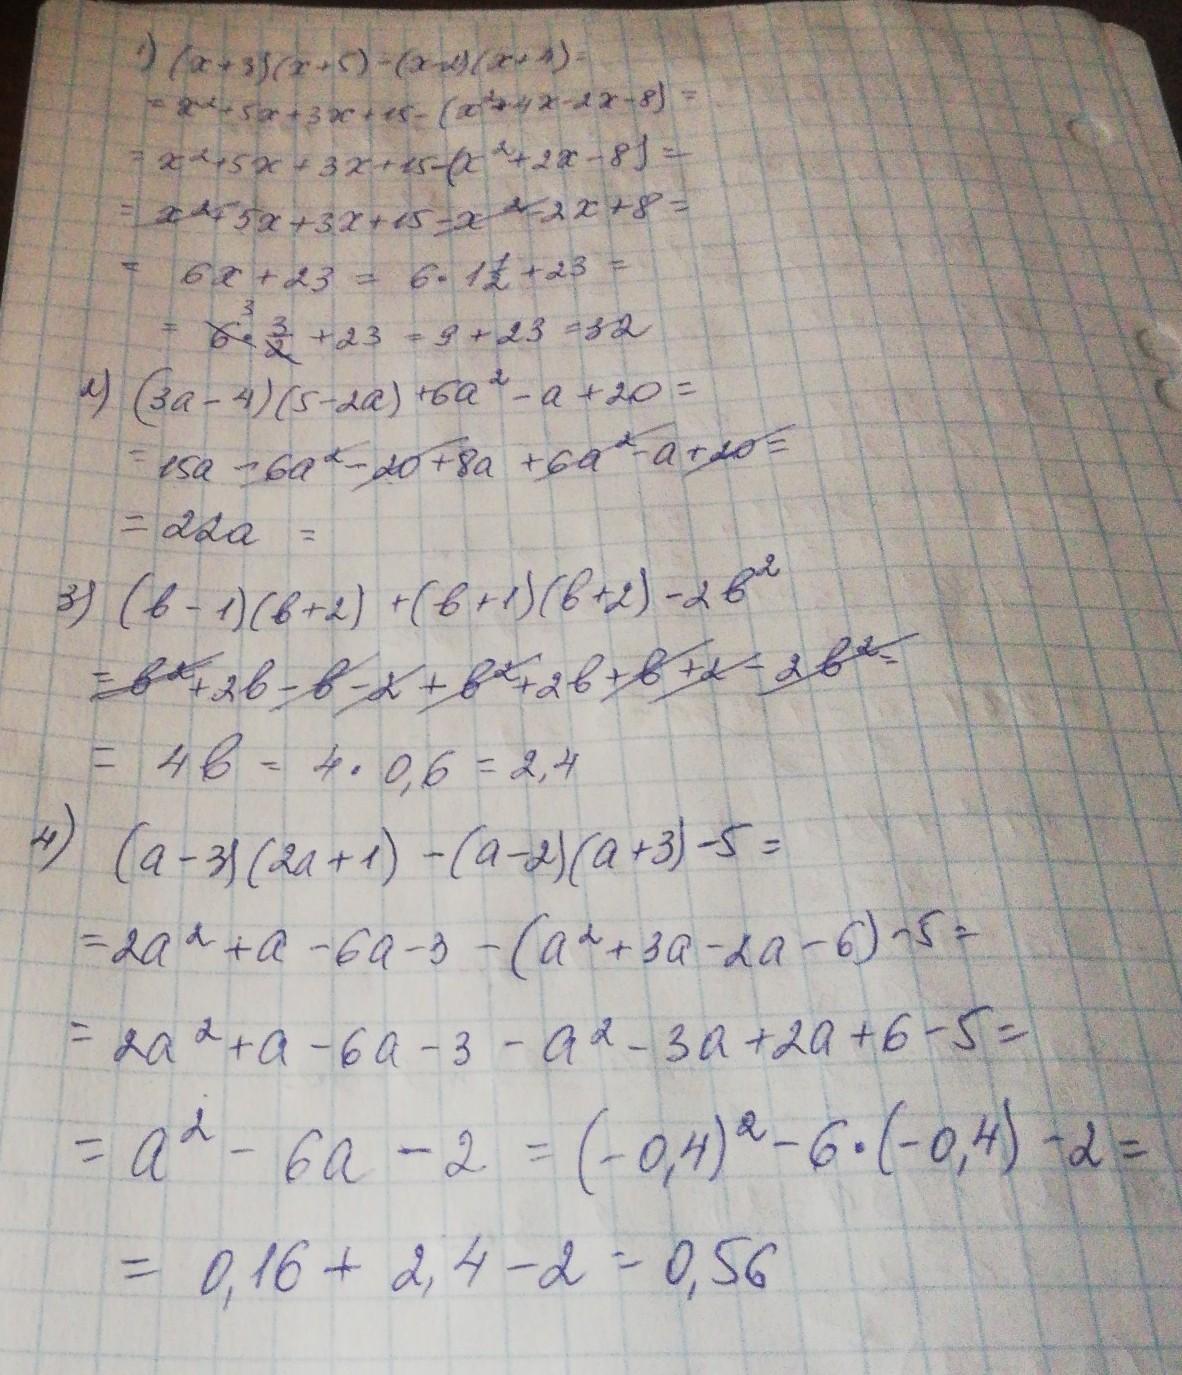 1) (x+3)(x+5)-(x-2)(x+4)=
= x²+5x+3x+15-(x²+4x-2x-8) =
= x²+5x+3x+15-(x²+2x-8) =
= x²+5x+3x+15-x²-2x+8 =
= 6x+23 = 6·1 1/2 +23 =
= 6³· 3/2 +23 = 9+23 = 32
2) (3a-4)(5-2a)+6a²-a+20=
= 15a-6a²-20+8a+6a²-a+20=
= 22a =
3) (b-1)(b+2)+(b+1)(b+2)-2b²
= b²+2b-b-2+b²+2b+b+2-2b²=
= 4b = 4·0,6 = 2,4
4) (a-3)(2a+1)-(a-2)(a+3)-5=
= 2a²+a-6a-3-(a²+3a-2a-6)-5=
= 2a²+a-6a-3-a²-3a+2a+6-5=
= a²-6a-2 = (-0,4)²-6·(-0,4)-2=
= 0,16+2,4-2=0,56